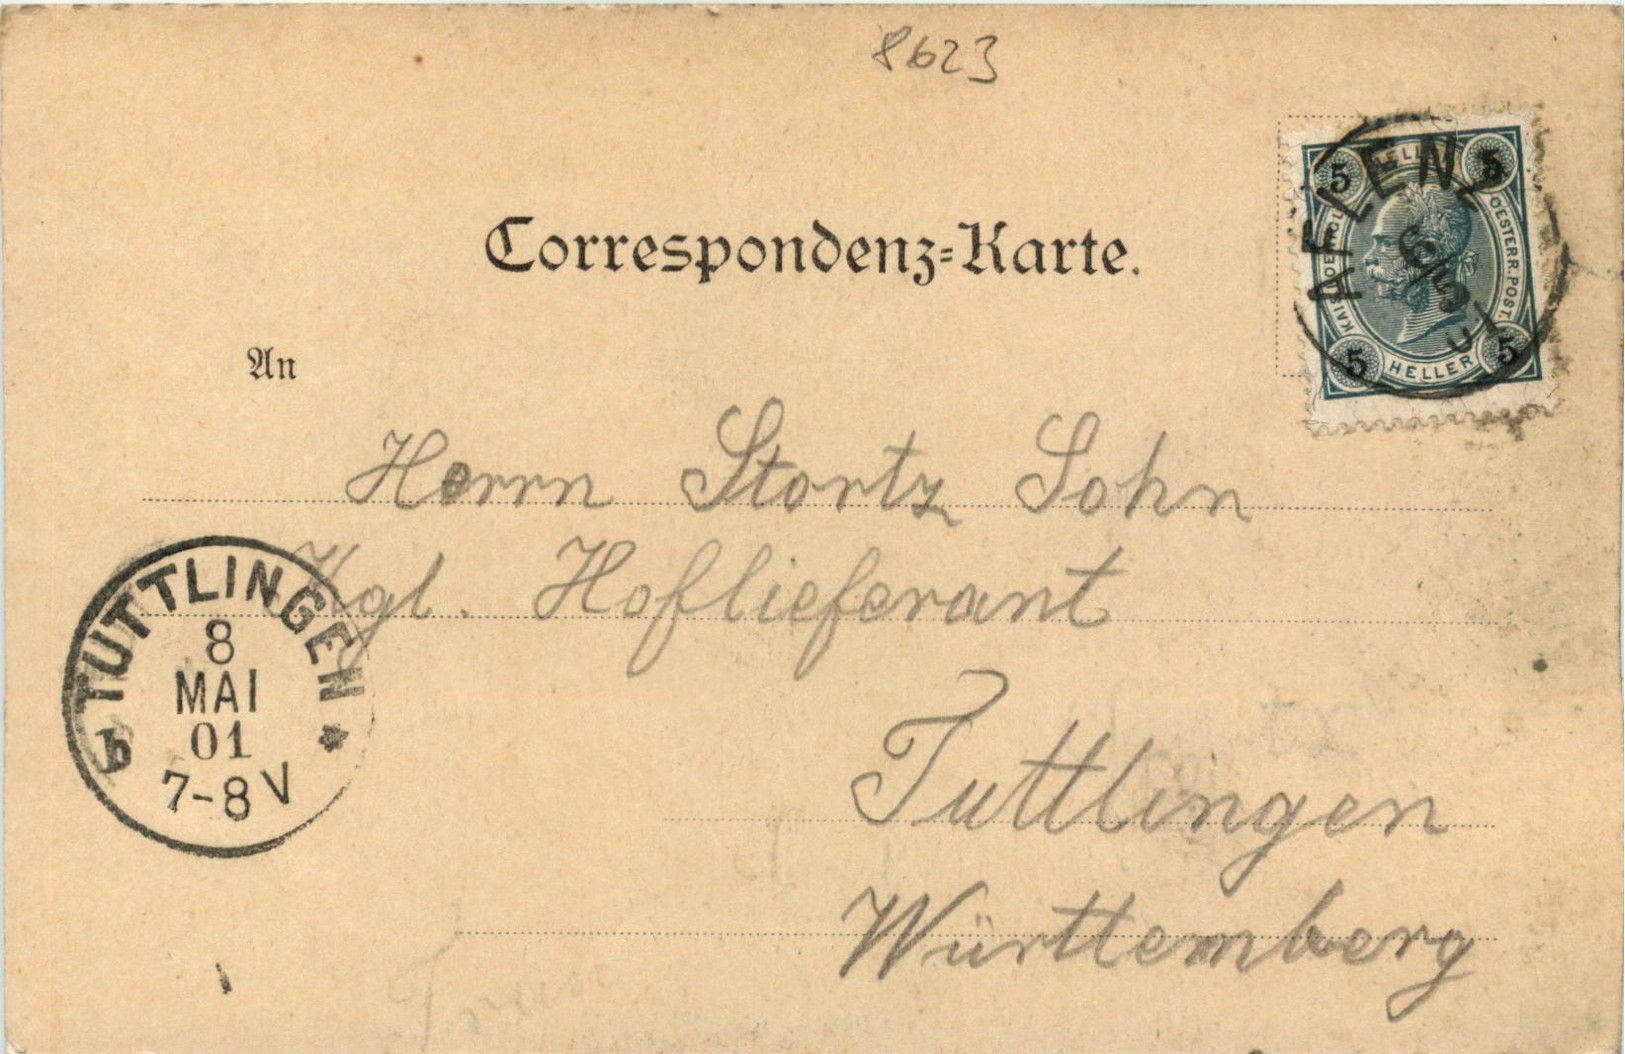 8623
Correspondenz-Karte.
An
AFLENZ
6/5
5 HELLER 5
KAIS. OESTERR. POST.
5 HELLER 5
Herrn Stortz Sohn
Kgl. Hoflieferant
Tuttlingen
Württemberg
TUTTLINGEN
8
MAI
01
7-8V
b